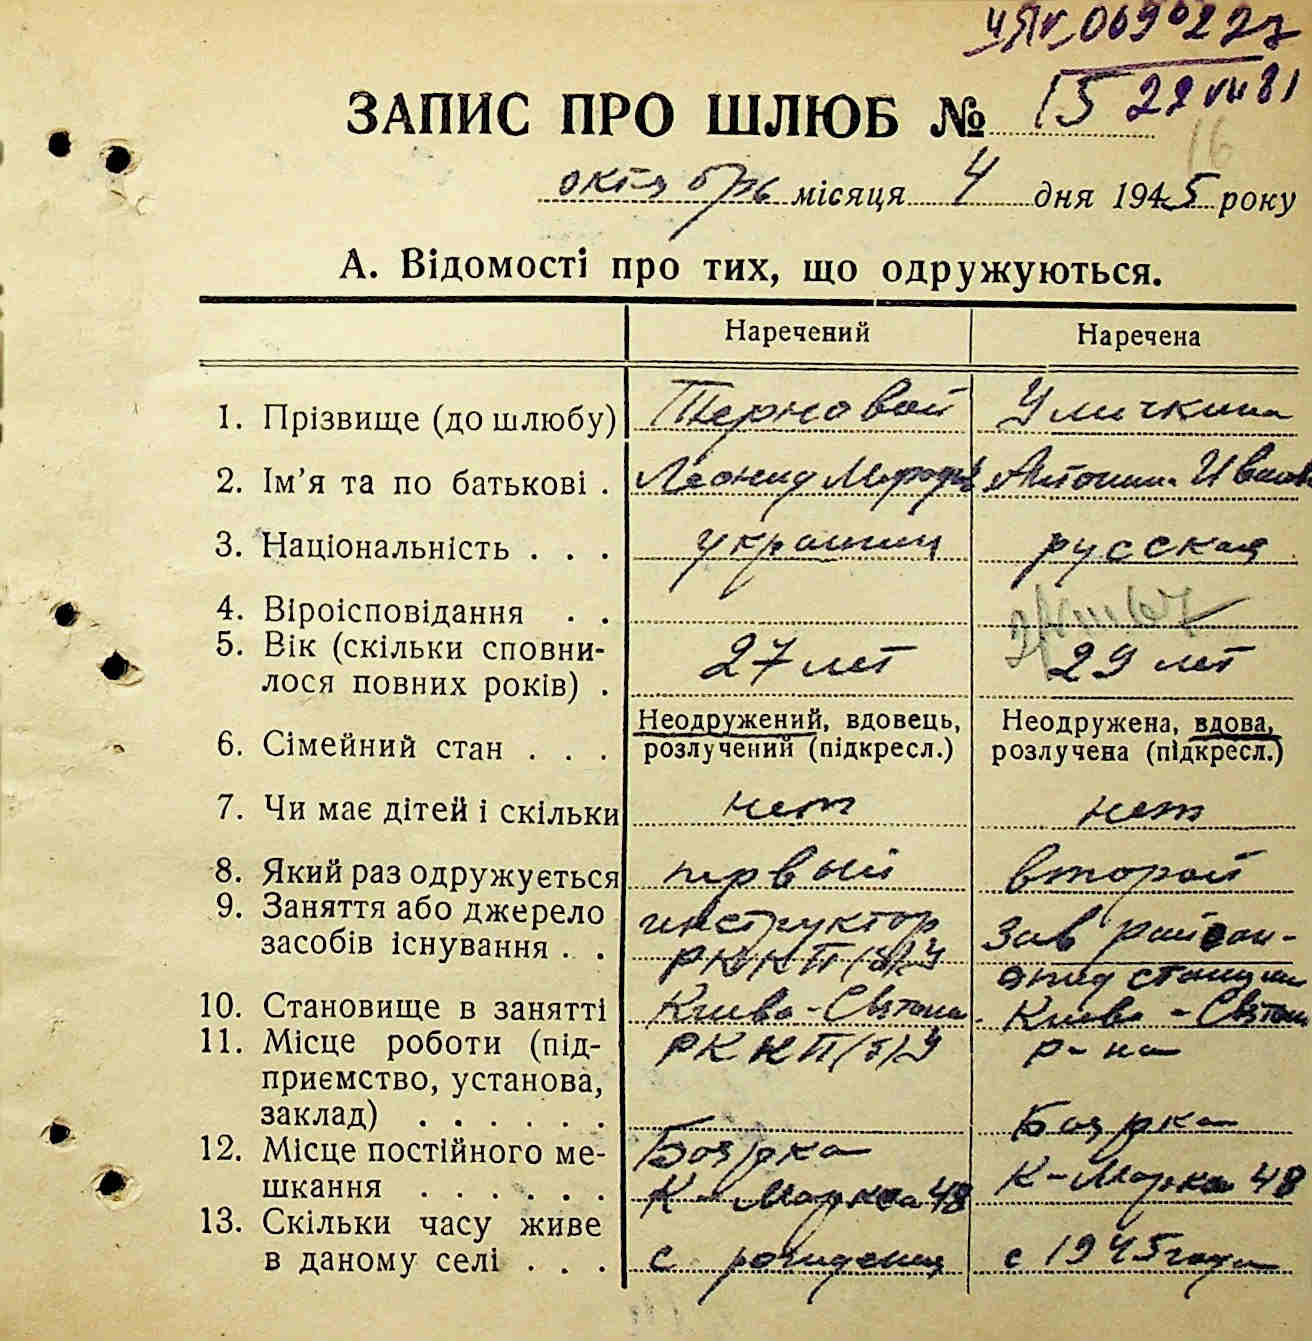 069022
ЗАПИС ПРО ШЛЮБ № 15 22 VII 81
16
октябрь місяця 4 дня 1945 року
А. Відомості про тих, що одружуються.
Наречений Наречена
1. Прізвище (до шлюбу) Терновой Уличкина
2. Ім’я та по батькові . Леонид Антонина Иванов
3. Національність . . . украинец русская
4. Віроісповідання . .
5. Вік (скільки сповни-
лося повних років) . 27 лет 29 лет
6. Сімейний стан . . . Неодружений, вдовець, розлучений (підкресл.) Неодружена, вдова, розлучена (підкресл.)
7. Чи має дітей і скільки нет нет
8. Який раз одружується первый второй
9. Заняття або джерело
засобів існування . . инструктор РККП(б)У Зав райсан-
эпид станции
10. Становище в занятті Киево-Святош. Киево-Святош
11. Місце роботи (під- РККП(б)У р-на
приємство, установа,
заклад) . . . . . .
12. Місце постійного ме- Боярка Боярка
шкання . . . . . . К-Маркса 48 К-Маркса 48
13. Скільки часу живе
в даному селі . . . с рождения с 1945 года